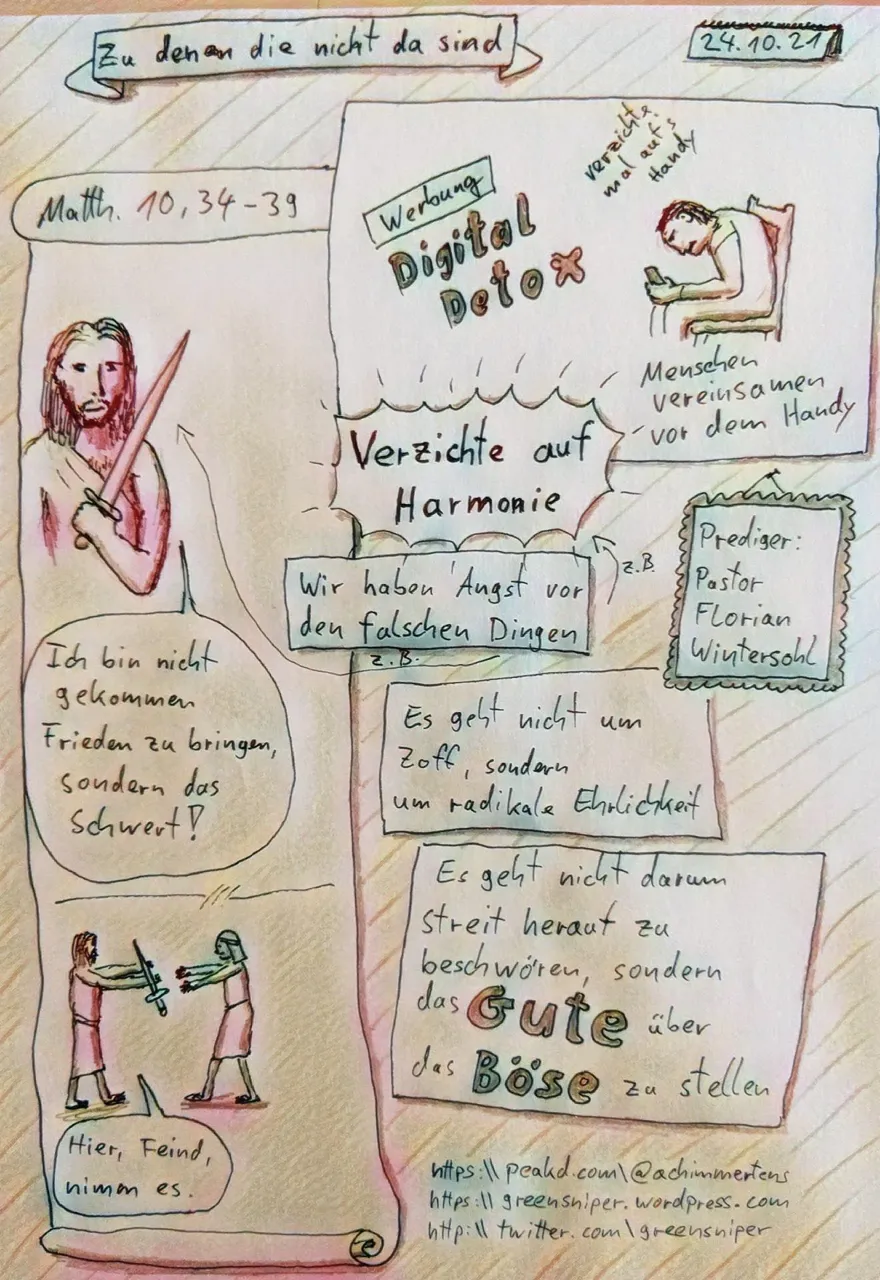 Zu denen die nicht da sind
24.10.21
Matth. 10,34-39
Werbung
Digital
Detox
verzichte
mal auf's
Handy
Menschen
vereinsamen
vor dem Handy
Verzichte auf
Harmonie
z.B.
Wir haben Angst vor
den falschen Dingen
z.B.
Prediger:
Pastor
Florian
Wintersohl
Ich bin nicht
gekommen
Frieden zu bringen,
sondern das
Schwert!
Es geht nicht um
Zoff, sondern
um radikale Ehrlichkeit
Es geht nicht darum
streit herauf zu
beschwören, sondern
das Gute über
das Böse zu stellen
Hier, Feind,
nimm es.
https:\\ peakd.com\@achimmertens
https:\\ greensniper.wordpress.com
http:\\ twitter.com\greensniper